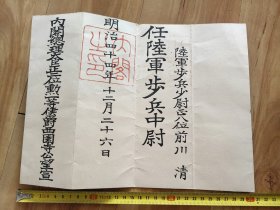 陸軍歩兵少尉正八位前川 清
任陸軍歩兵中尉
明治四十四年十二月二十六日
内閣總理大臣正二位勲一等侯爵西園寺公望宣
内閣之印